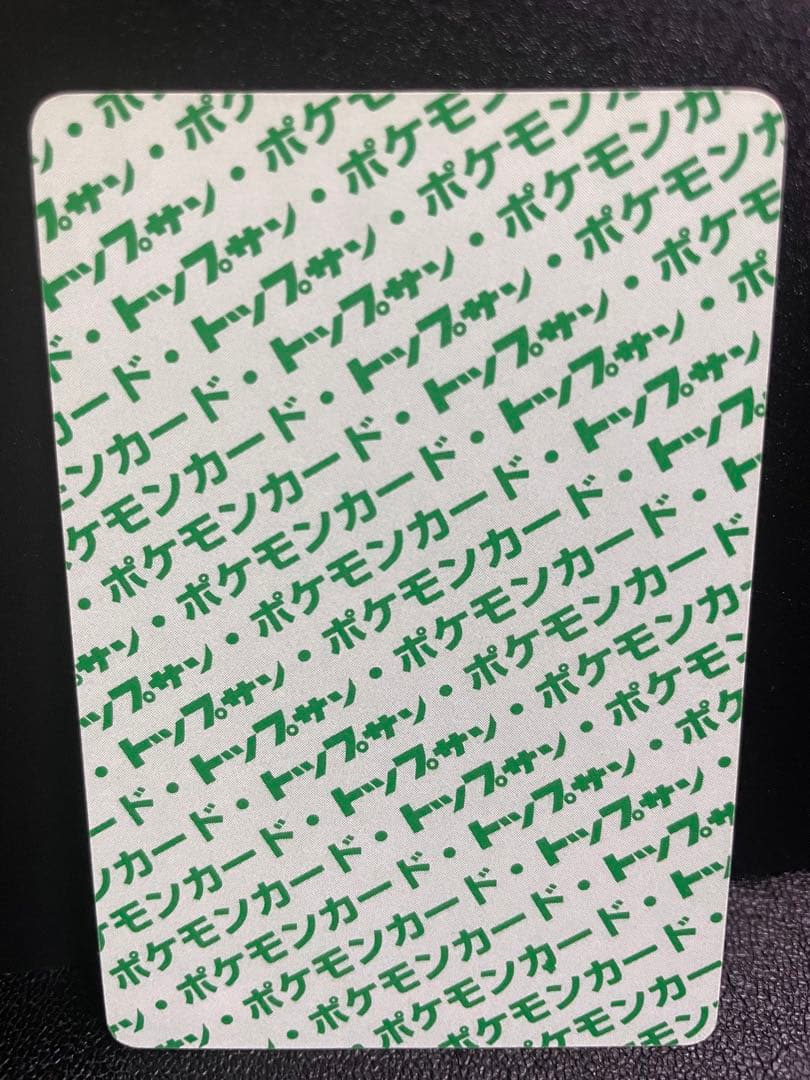 ン・ポ
プサン・ポケ
トップサン・ポケモ
ド・トップサン・ポケモ
カード・トップサン・ポケモン
ンカード・トップサン・ポケモンカ
ケモンカード・トップサン・ポケモンカ
・ポケモンカード・トップサン・ポケモ
サン・ポケモンカード・トップサン・ポ
ップサン・ポケモンカード・トップサン
・トップサン・ポケモンカード・トップ
ード・トップサン・ポケモンカード・ト
カード・トップサン・ポケモンカード
モンカード・トップサン・ポケモンカー
ポケモンカード・トップサン・ポケモン
ン・ポケモンカード・トップサン・ポケ
・ポケモンカード・トップサン・
・ポケモンカード・トップサ
ポケモンカード・トッ
ケモンカード・
モンカー